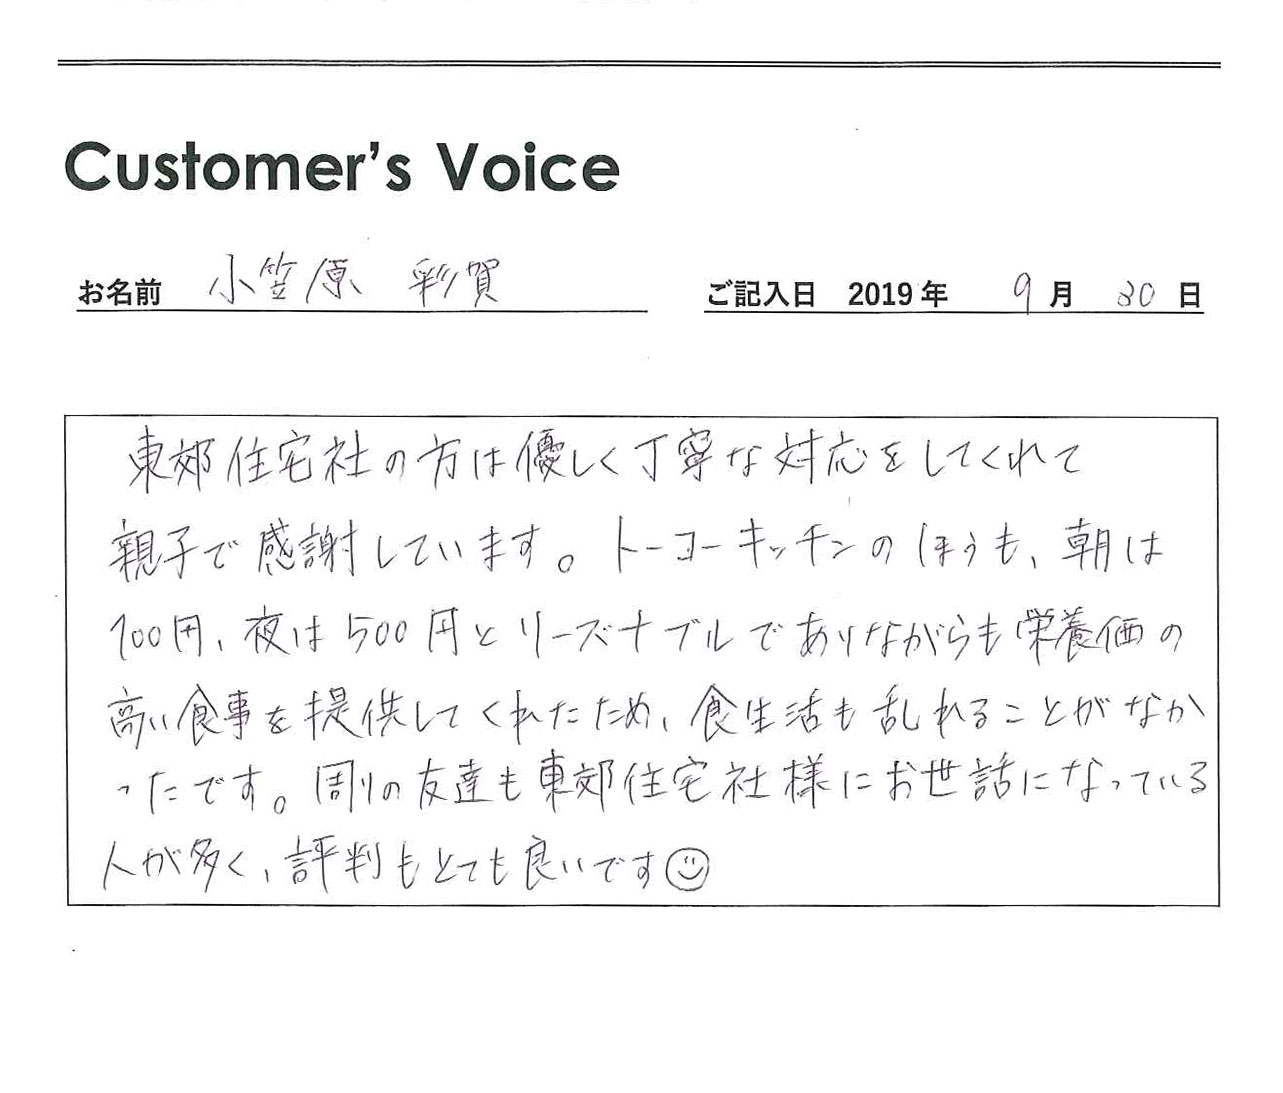 Customer's Voice
お名前 小笠原 彩賀 ご記入日 2019年 9月 30日
東郊住宅社の方は優しく丁寧な対応をしてくれて
親子で感謝しています。トーコーキッチンのほうも、朝は
100円、夜は500円とリーズナブルでありながらも栄養価の
高い食事を提供してくれたため、食生活も乱れることがなか
ったです。周りの友達も東郊住宅社様にお世話になっている
人が多く、評判もとても良いです☺